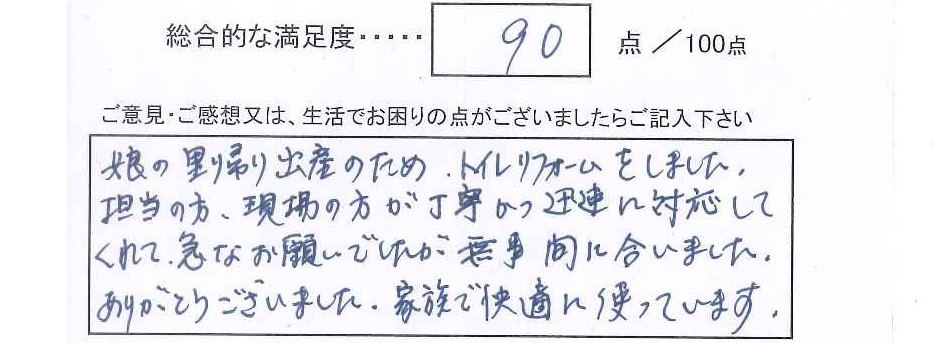 総合的な満足度・・・・・ 90 点 ／100点
ご意見・ご感想又は、生活でお困りの点がございましたらご記入下さい
娘の里帰り出産のため、トイレリフォームをしました。
担当の方、現場の方が丁寧かつ迅速に対応して
くれて、急なお願いでしたが無事間に合いました。
ありがとうございました。家族で快適に使っています。